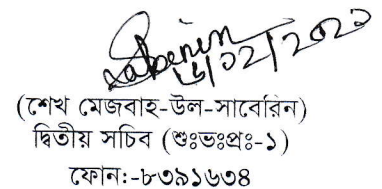 Saberin
(শেখ মেজবাহ-উল-সাবেরিন)
দ্বিতীয় সচিব (শুঃভঃপ্রঃ-১)
ফোন:-৮৩৯১৬৩৪